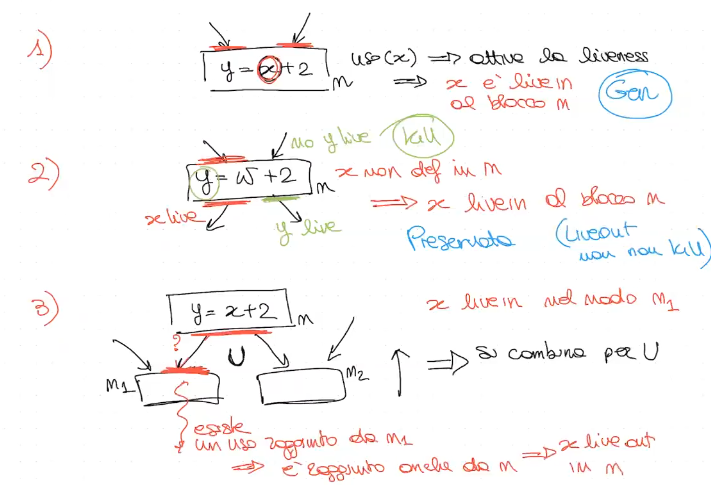 1)
y = x + 2
m
uso(x) ⇒ attiva la liveness
⇒ x è live in
al blocco m
Gen
2)
no y live
Kill
y = w + 2
m
x non def in m
⇒ x live in al blocco m
x live
y live
Preservata
(liveout
non kill)
3)
y = x + 2
m
x live in nel nodo m1
?
U
m1
m2
⇒ si combina per U
esiste
un uso raggiunto da m1
⇒ è raggiunto anche da m ⇒ x live out
in m